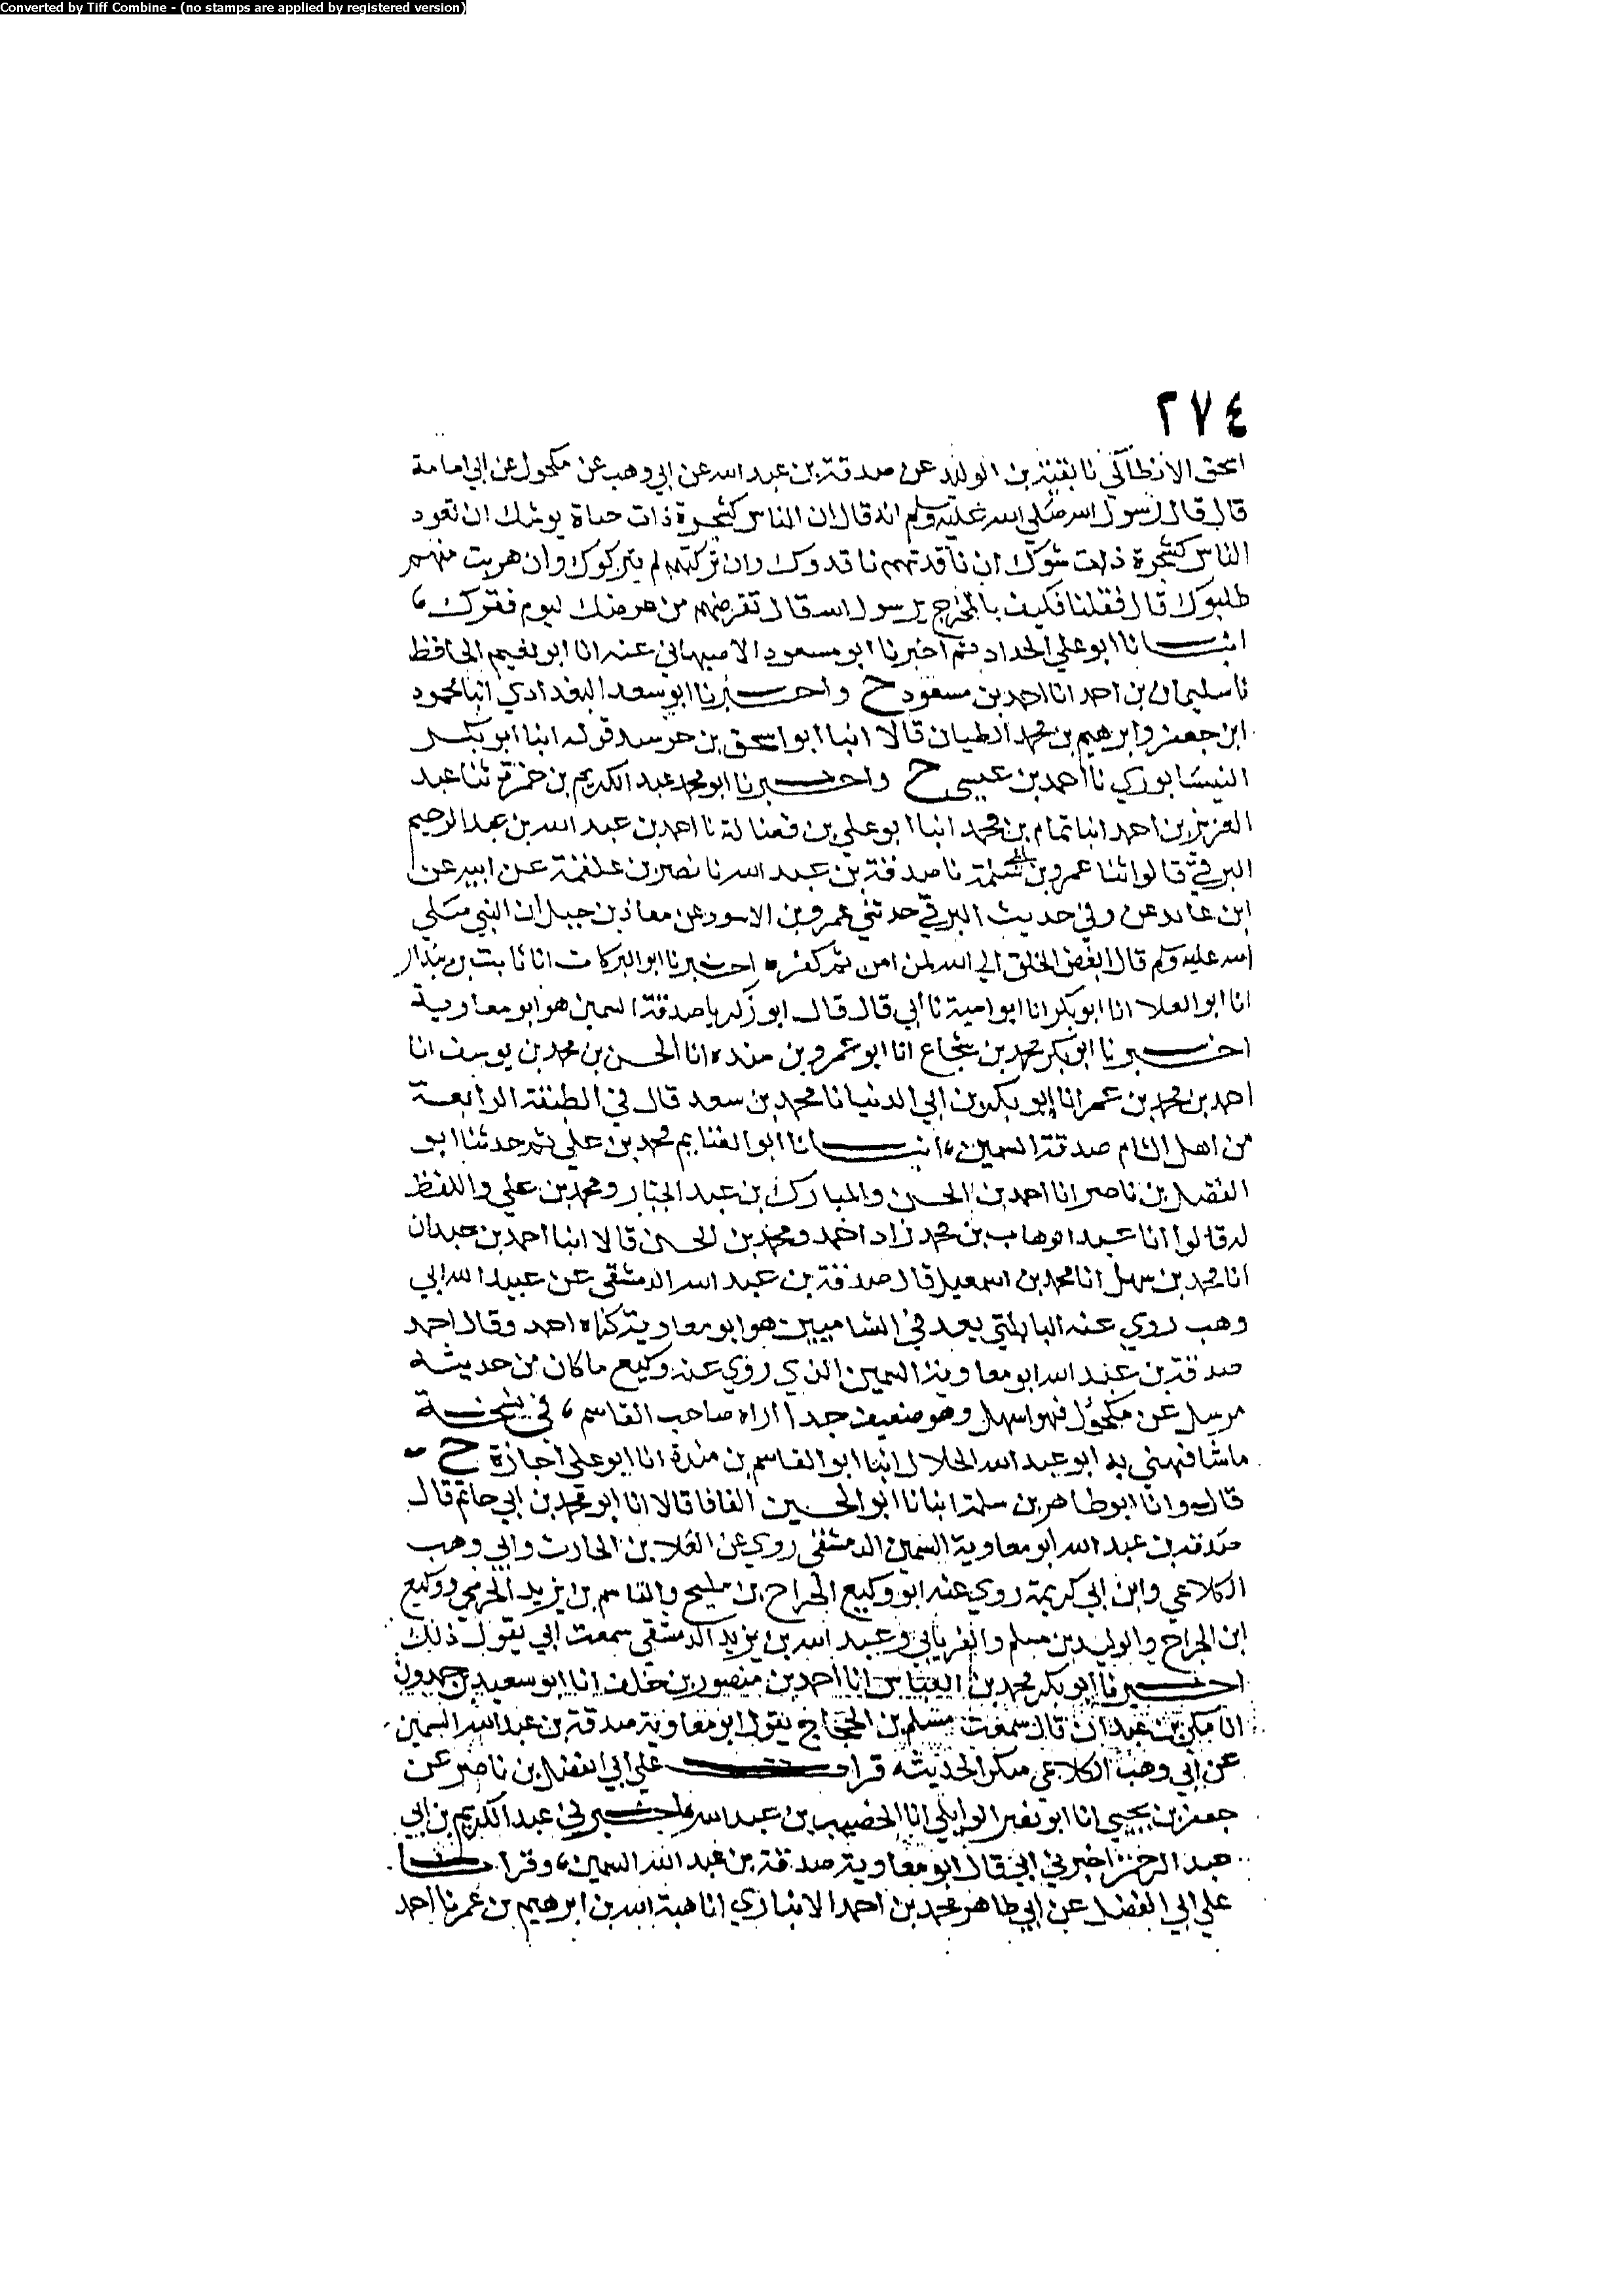 Converted by Tiff Combine - (no stamps are applied by registered version)
٢٧٤
اسحق الانطاكي نا بقية بن الوليد عن صدقة بن عبد الله عن ابي وهب عن مكحول عن ابي امامة
قال قال رسول الله صلي الله عليه وسلم انه قال ان الناس كشجرة ذات حياة يوشك ان تعود
الناس كشجرة ذات شوك ان ناقدتهم ناقدوك وان تركتهم لم يتركوك وان هربت منهم
طلبوك قال فقلنا فكيف بالمخرج يرسول الله قال تقرضهم من عرضك ليوم فقرك ،
انبــــانا ابو علي الحداد ثم اخبرنا ابو مسعود الاصبهاني عنه انا ابو نعيم الحافظ
نا سليمان بن احمد انا احمد بن مسعود ح واخــبرنا ابو سعد البغدادي انبا محمود
ابن جعفر وابرهيم بن محمد الطيان قالا انبا ابو اسحق بن خرسد قوله ابنا ابو بكر
النيسابوري نا احمد بن عيسى ح واخــبرنا ابو محمد عبد الكريم بن حمزة ثنا عبد
العزيز بن احمد انبا تمام بن محمد انبا ابو علي بن فضالة نا احمد بن عبد الله بن عبد الرحيم
البرقي قالوا ثنا عمرو بن سلمة نا صدقة بن عبد الله نا نصر بن علقمة عن ابيه عن
ابن عائد عن وفي حديث البرقي حدثني عمرو بن الاسود عن معاذ بن جبل ان النبي صلي
الله عليه وسلم قال ابغض الخلق الي الله لمن امن ثم كفر • اخــبرنا ابو البركات انا ثابت بن بندار
انا ابو العلا انا ابو بكر انا ابو امية نا أبي قال قال ابو زكريا صدقة السمين هو ابو معاوية
اخــبرنا ابو بكر محمد بن شجاع انا ابو عمرو بن منده انا الحسن بن محمد بن يوسف انا
احمد بن محمد بن عمر انا ابو بكر بن ابي الدنيا نا محمد بن سعد قال في الطبقة الرابعة
من اهل الشام صدقة السمين ، انبــــانا ابو الغنايم محمد بن علي ثم حدثنا ابو
الفضل بن ناصر انا احمد بن الحسن والمبارك بن عبد الجبار ومحمد بن علي واللفظ
له قالوا انا عبد الوهاب بن محمد زاد احمد ومحمد بن الحسن قالا ابنا احمد بن عبدان
انا محمد بن سهل انا محمد بن اسمعيل قال صدقة بن عبد الله الدمشقي عن عبيد الله ابي
وهب روي عنه يعد في الشاميين هو ابو معاوية كناه احمد وقال احمد
صدقة بن عبد الله ابو معاوية السمين الذي روي عنه وكيع ما كان من حديثه
مرسل عن مكحول فهو اسهل وهو ضعيف جدا اراه صاحب القاسم ، في نسخــة
ما شافهني به ابو عبد الله الخلال انبا ابو القاسم بن مندة انا ابو علي اجازة ح
قال وانا ابو طاهر بن سلمة ابنانا ابو الحسين الفافا قالا انا ابو محمد بن ابي حاتم قال
صدقة بن عبد الله ابو معاوية السمين الدمشقي روي عن العلا بن الحارث وابي وهب
الكلاعي وابن ابي كريمة روي عنه ابو وكيع الجراح بن مليح والقاسم بن يزيد الجرمي ووكيع
ابن الجراح والوليد بن مسلم والفريابي وعبد الله بن يزيد الدمشقي سمعت ابي يقول ذلك
اخــبرنا ابو بكر محمد بن العباس انا احمد بن منصور بن خلف انا ابو سعيد بن حمدون
انا مكي بن عبدان قال سمعت مسلم بن الحجاج يقول ابو معاوية صدقة بن عبد الله السمين
عن ابي وهب الكلاعي منكر الحديث قرات علي ابي الفضل بن ناصر عن
جعفر بن يحيي انا ابو نصر الوايلي انا الخصيب بن عبد الله اخــبرني عبد الكريم بن ابي
عبد الرحمن اخبرني ابي قال ابو معاوية صدقة بن عبد الله السمين ، وقرانــا
علي ابي الفضل عن ابي طاهر محمد بن احمد الانباري انا هبة الله بن ابرهيم بن عمر نا احمد